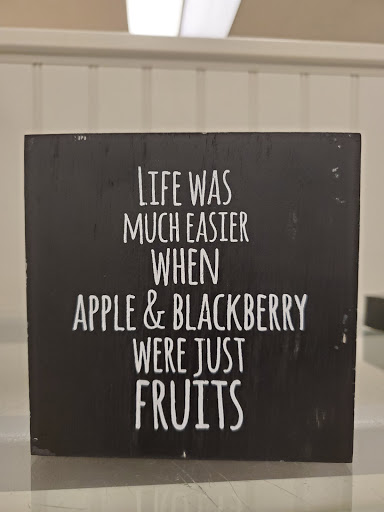 LIFE WAS
MUCH EASIER
WHEN
APPLE & BLACKBERRY
WERE JUST
FRUITS